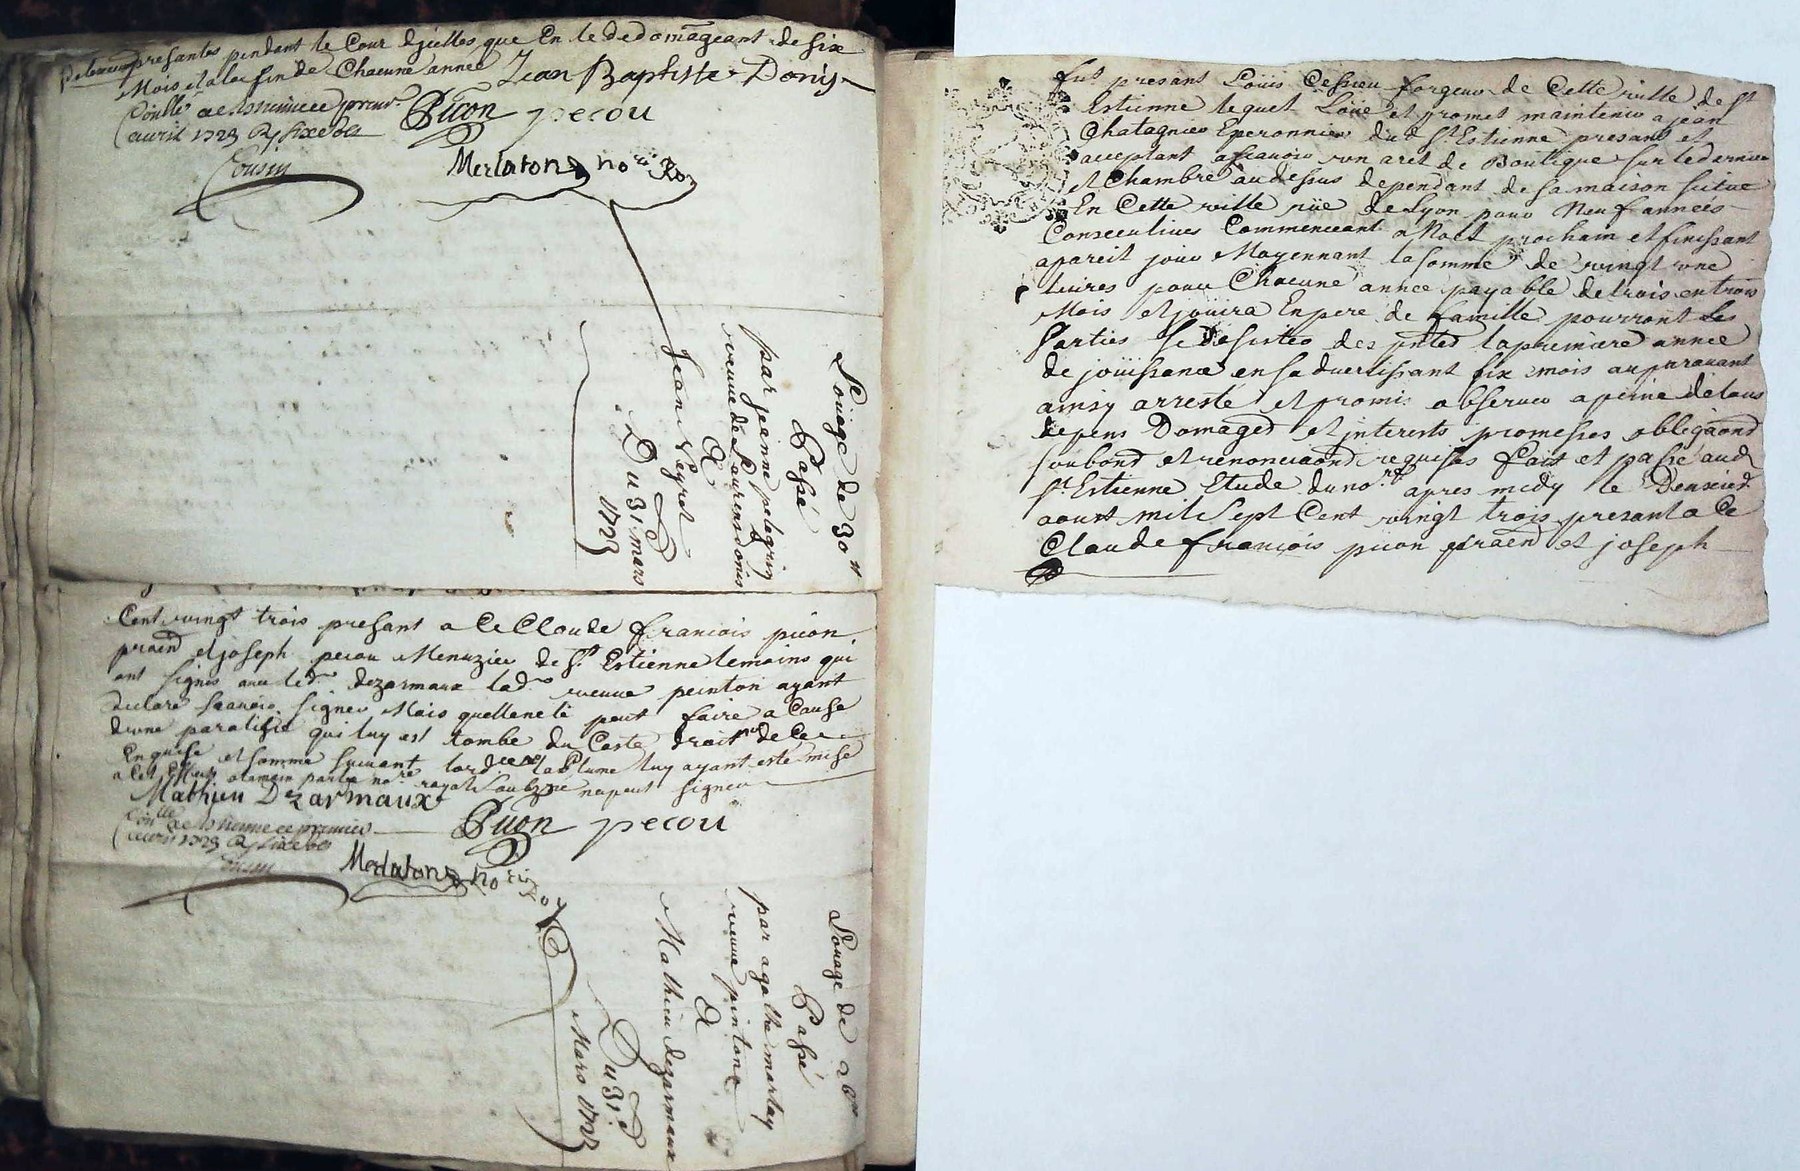 presantes pendant le Cour d'jcelles que En le dedomageant de six
Mois et a la fin de Chacune année Jean Baptiste Donis
Con^lle a St Estienne ce premr
avril 1723 R/ six sols Picon pecou
Cousin
Merlaton no^re Ro^l
Louage de 30^lt
Passé
par jeanne pelagrin
veuve de Laurens donis
A
Jean Neyret
Du 31 mars
1723
Cent vingt trois presant a Ce Claude francois picon
praen^d et joseph pecou Menuzier de S^t Estienne temoins qui
ont signés avec led^t dezarmaux lad^e veuve peinton ayant
declaré scavoir signer Mais quelle ne le peut faire a Cause
d'une paralisie qui luy est tombé du Costé droit de Ce
Enquise et sommé suivant lord^ce et la plume luy ayant esté mise
a la main par le no^re royal soubz^ne na peut signer
Mathieu Dezarmaux
Con^lle a St Estienne ce premier
avril 1723 R/ six sols Picon pecou
Cousin
Merlaton no^re Ro^l
Louage de 26^lt
Passé
par agathe marlay
veuve pintone
A
Mathieu dezarmaux
Du 31^e
Mars 1723
fut presant Loüis Cessieu forgeur de Cette ville de S^t
Estienne lequel Loüe et promet maintenir a jean
Chatagnier Eperonnier dud S^t Estienne presant et
acceptant ascavoir un aret de Boutique sur le derriere
et Chambre au dessus dependant de sa maison scitue
En Cette ville rüe de Lyon pour Neuf années
Consecutives Commencant a Noel prochain et finissant
a pareil jour Moyennant la somme de vingt une
livres pour Chacune année payable de trois en trois
Mois et joüira En pere de famille pourront Les
Parties se desister des pntes la premiere année
de joüissance en sadvertissant six mois auparavant
ainsy arresté et promis observer a peine de tous
depens Domages et jnterests promesses obligaond
soubond et renonciaond requises fait et passé aud
S^t Estienne Etude du no^re apres midy le Deuxied
aoust mil Sept Cent vingt trois presant a Ce
Claude francois picon praen^d et joseph